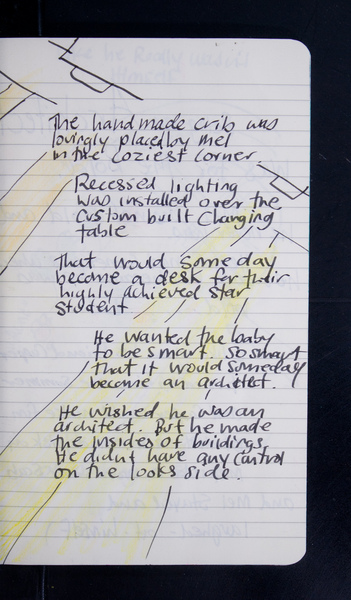 The handmade crib was
lovingly placed by Mel
in the coziest corner.
Recessed lighting
was installed over the
custom built Changing
table
That would someday
become a desk for their
highly achieved star
student
He wanted the baby
to be smart. So smart
that it would someday
become an architect.
He wished he was an
architect. But he made
the insides of buildings.
He didnt have any control
on the looks side.